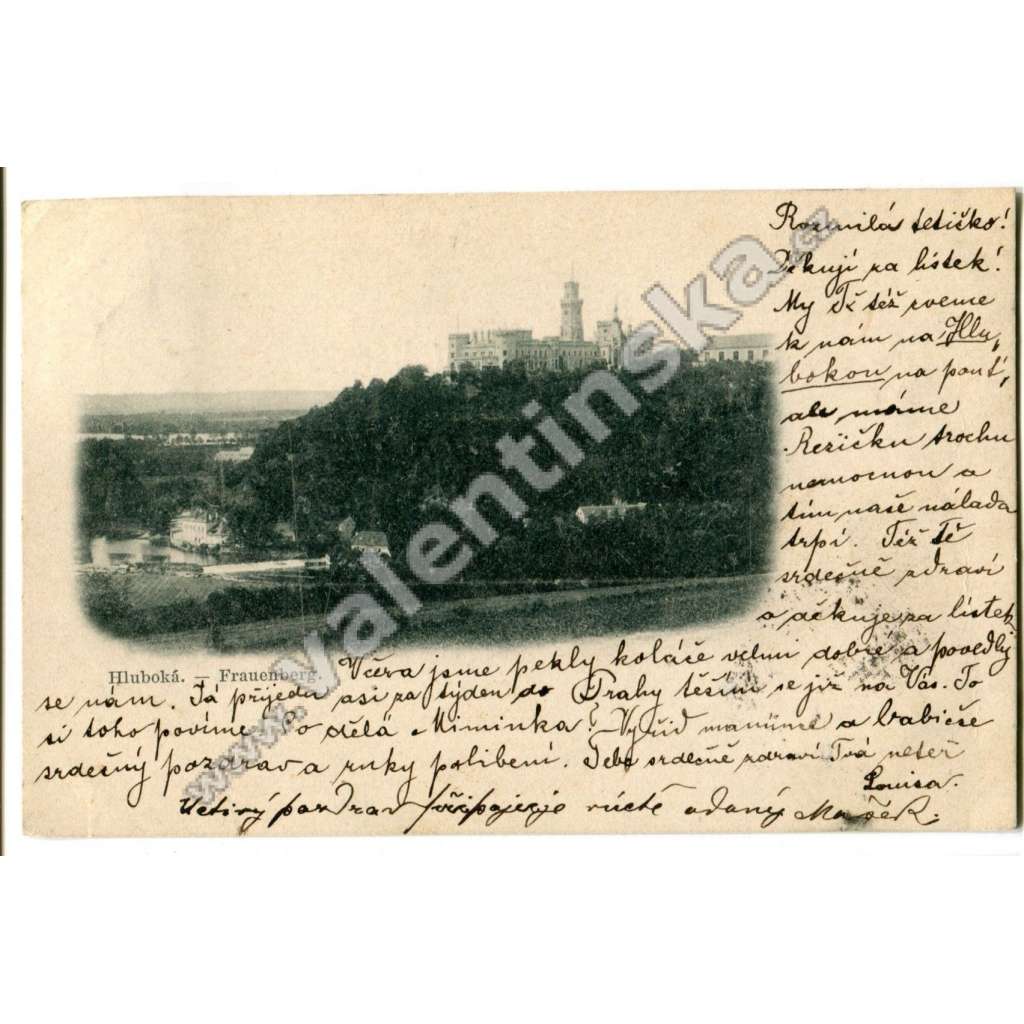 Rozmilá tetičko!
Děkuji za lístek!
My Tě též zveme
k nám na Hlu-
bokou na pouť,
ale máme
Rezičku trochu
nemocnou a
tím naše nálada
trpí. Též Tě
srdečně zdraví
a děkuje za lístek
Hluboká. — Frauenberg.
Včera jsme pekly koláče velmi dobré a povedly
se nám. Já přijedu asi za týden do Prahy těším se již na Vás. To
si toho povíme. Co dělá Miminka? Vyřiď mamince a babičce
srdečný pozdrav a ruky políbení. Tebe srdečně zdraví Tvá neteř
Louisa.
Uctivý pozdrav připojuje v úctě oddaný
www.valentinska.cz